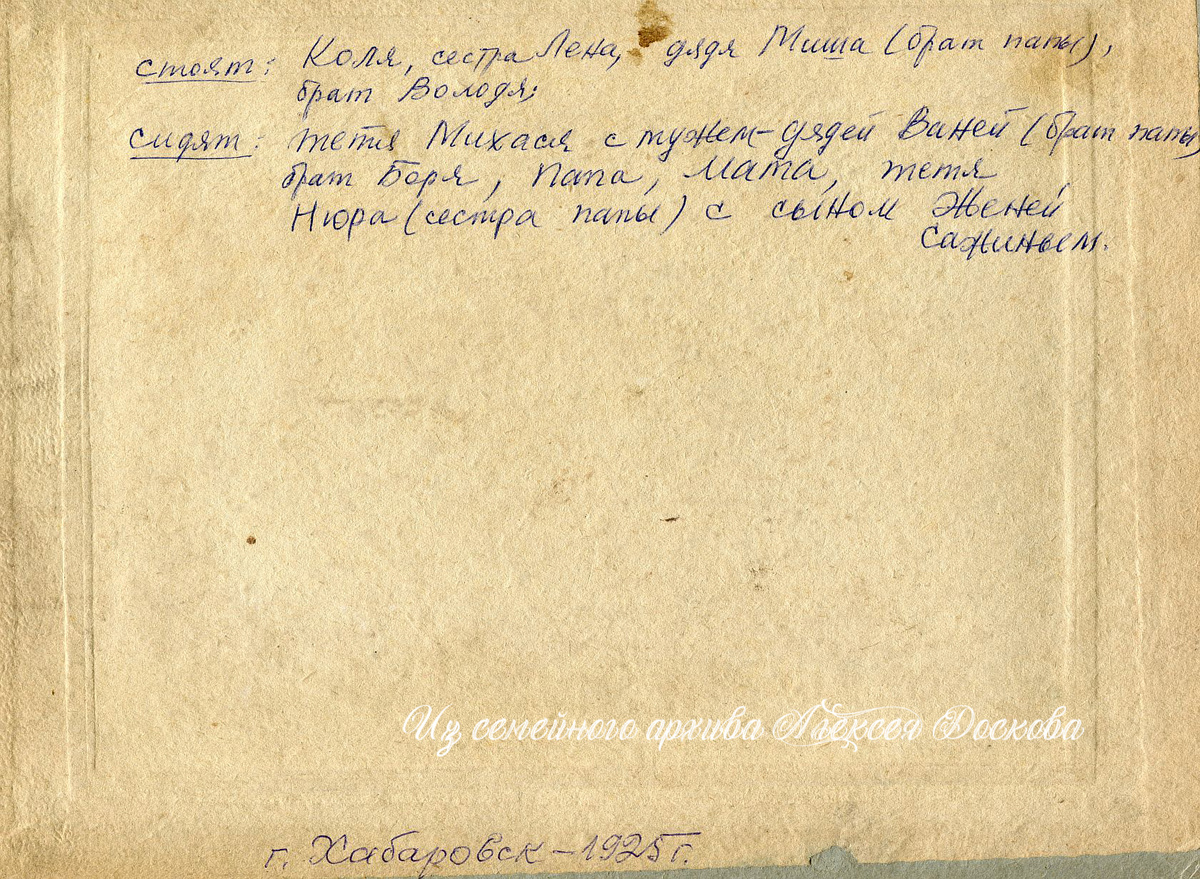 стоят: Коля, сестра Лена, дядя Миша (брат папы),
брат Володя;
сидят: тетя Михася с мужем-дядей Ваней (брат папы)
брат Боря, папа, мама, тетя
Нюра (сестра папы) с сыном Женей
Сажиным.
Из семейного архива Алексея Доскова
г. Хабаровск - 1925 г.